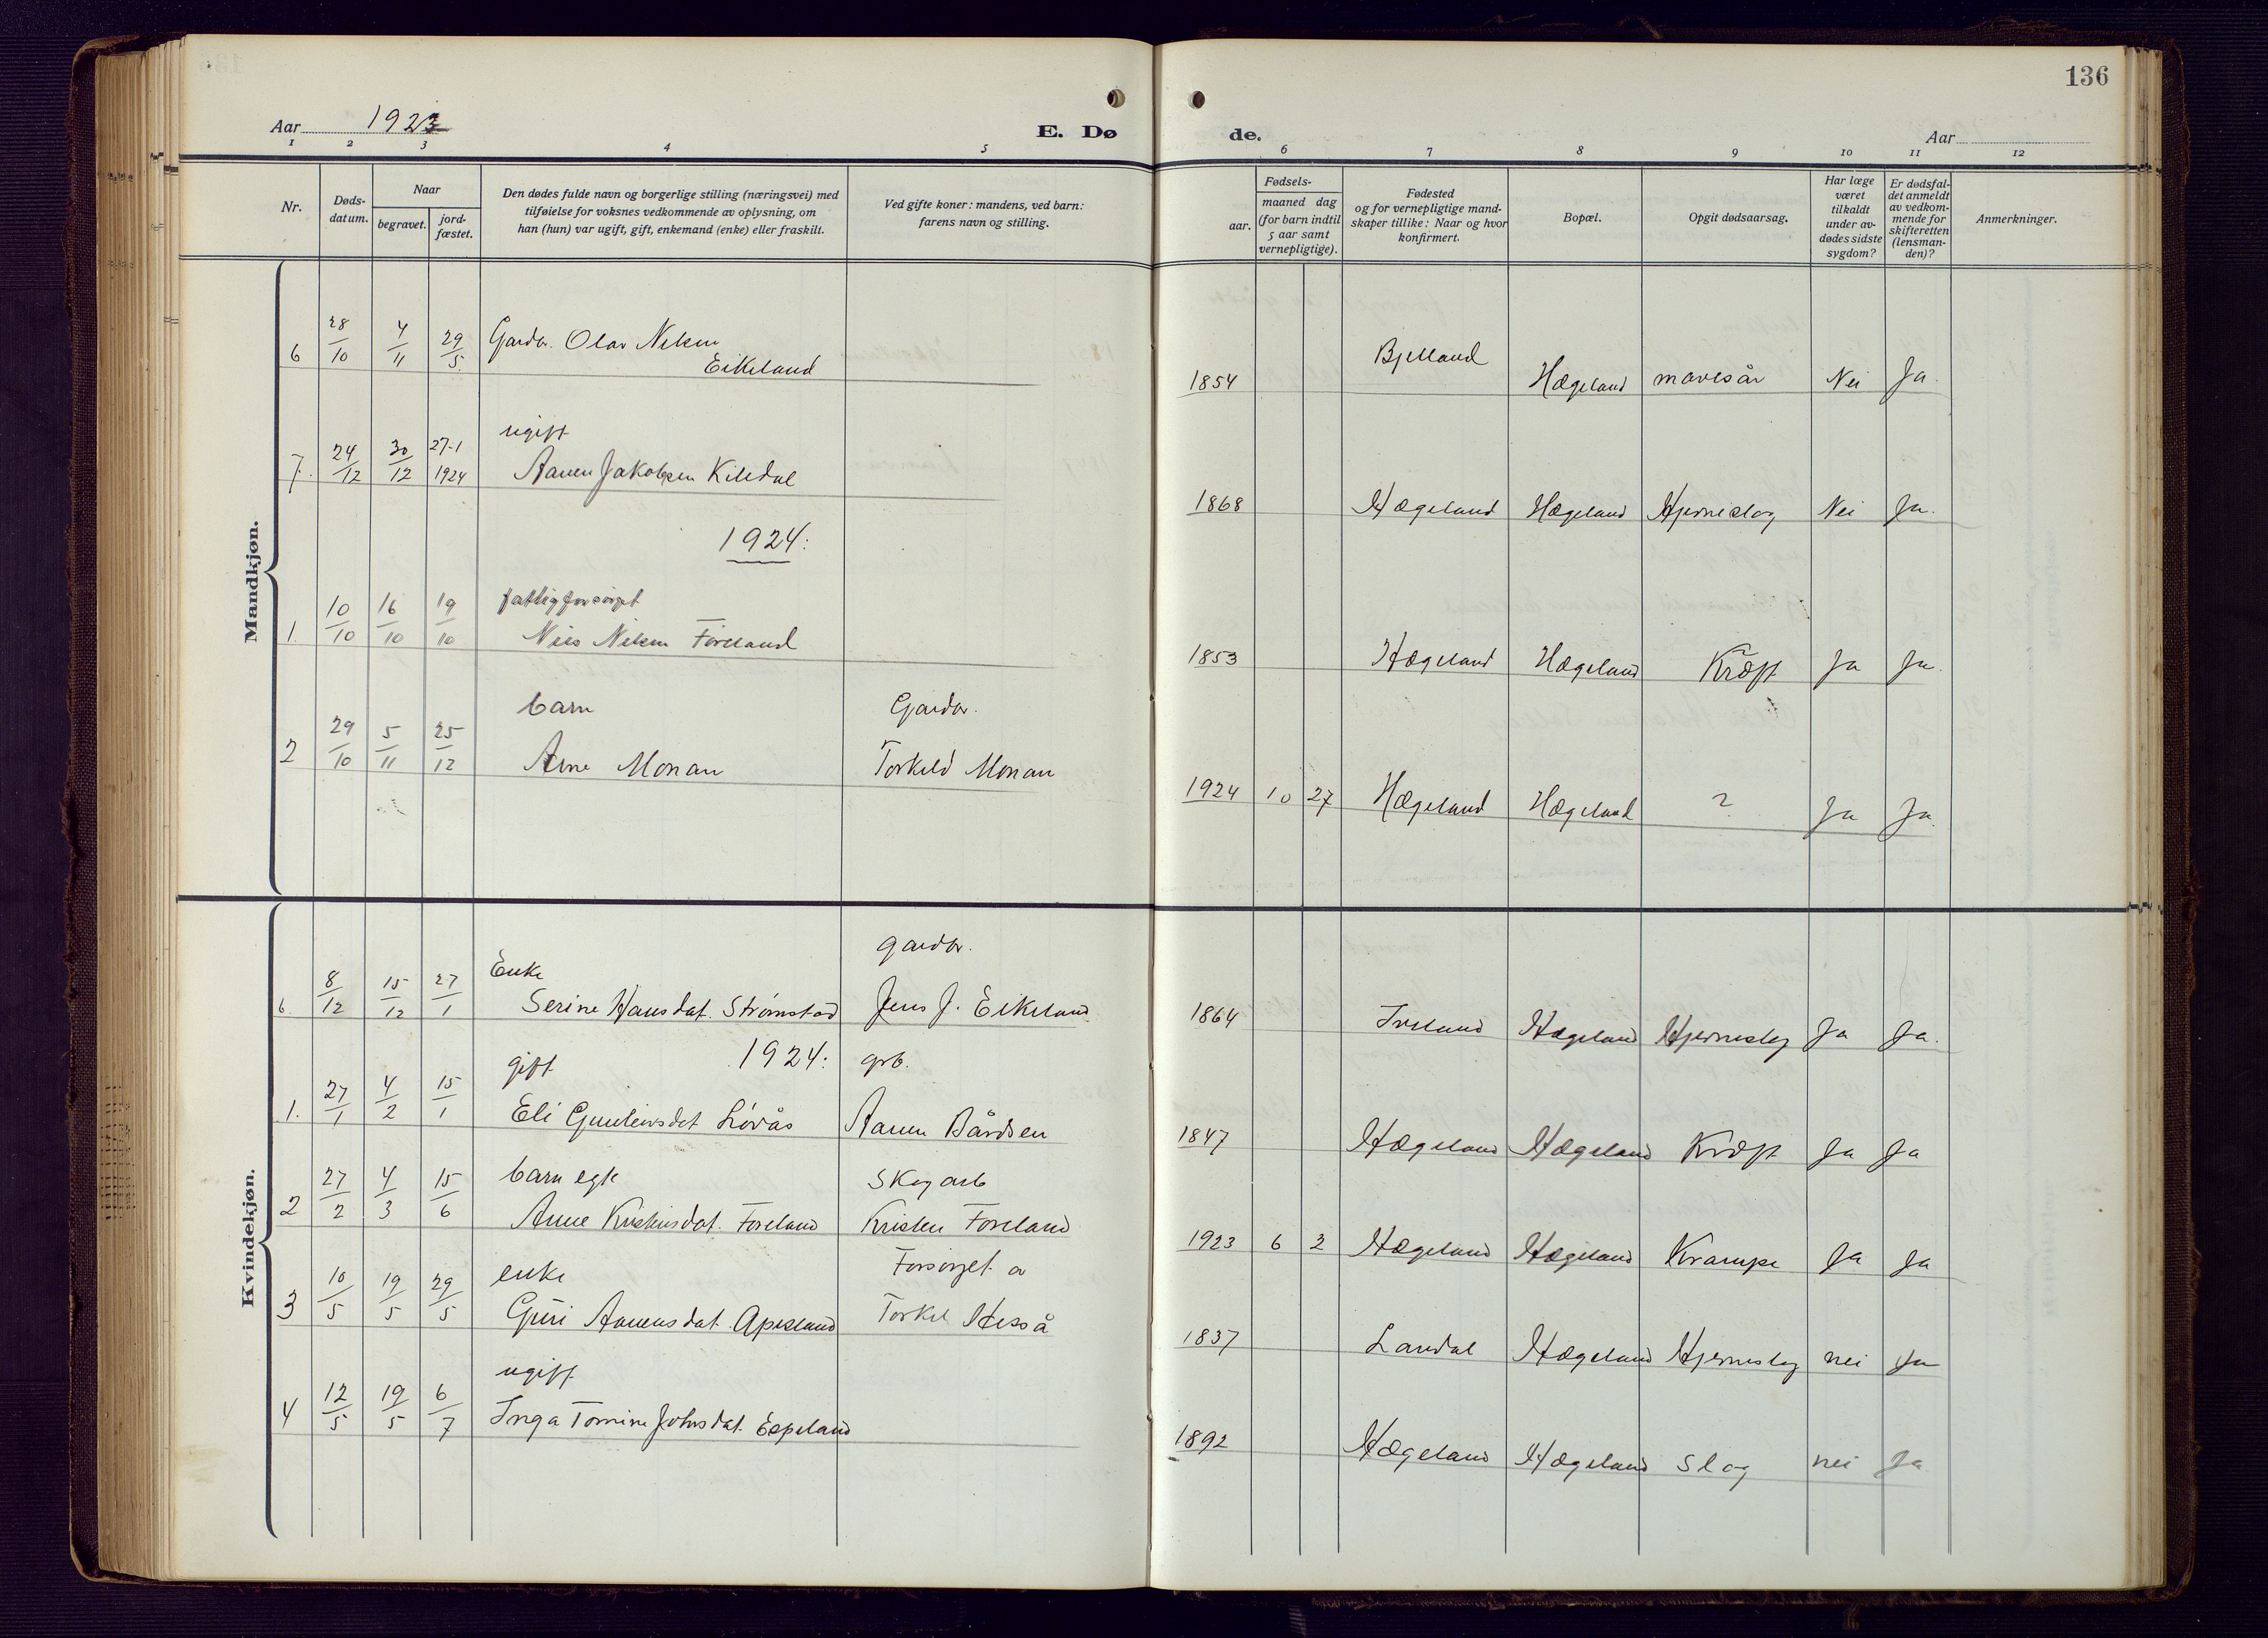 136
Aar 1923
E. Dø
de.
Aar
1 2 3 4 5 6 7 8 9 10 11 12
Nr.
Døds-
datum.
Naar
begravet.
jord-
fæstet.
Den dødes fulde navn og borgerlige stilling (næringsvei) med
tilføielse for voksnes vedkommende av oplysning, om
han (hun) var ugift, gift, enkemand (enke) eller fraskilt.
Ved gifte koner: mandens, ved barn:
farens navn og stilling.
Fødsels-
aar.
maaned dag
(for barn indtil
5 aar samt
vernepligtige).
Fødested
og for vernepligtige mand-
skaper tillike: Naar og hvor
konfirmert.
Bopæl.
Opgit dødsaarsag.
Har læge
været
tilkaldt
under av-
dødes sidste
sygdom?
Er dødsfal-
det anmeldt
av vedkom-
mende for
skifteretten
(lensman-
den)?
Anmerkninger.
Mandkjøn.
6 28/10 4/11 29/5. Gardbr. Olav Nilsen
Eikeland
1854 Bjelland Hægeland mavesår Nei Ja.
ugift
7. 24/12 30/12 27-1 1924 Aanen Jakobsen Kiledal
1868 Hægeland Hægeland Hjerneslag Nei Ja.
1924:
fattigforsørget
1. 10/10 16/10 19/10 Nils Nilsen Føreland
1853 Hægeland Hægeland Kræft Ja Ja.
barn Gardbr.
2 29/10 5/11 25/12 Arne Monan Torkeld Monan
1924 10 27 Hægeland Hægeland ? Ja Ja.
Kvindekjøn.
gardbr.
Enke
6. 8/12 15/12 27/1 Serine Hansdat. Strømstad Jens J. Eikeland
1864 Iveland Hægeland Hjerneslag Ja Ja.
gift 1924: grb.
1. 27/1 4/2 15/1 Eli Gunleivsdat Løvås Aanen Bårdsen
1847 Hægeland Hægeland Kræft Ja Ja
barn egte Skogarb
2 27/2 4/3 15/6 Anne Kristensdat. Føreland Kristen Føreland
1923 6 2 Hægeland Hægeland Krampe Ja Ja
enke Forsørget av
3 10/5 19/5 29/5 Guri Aanensdat. Apesland Torkel Hesså
1837 Laudal Hægeland Hjerneslag nei Ja
ugift
4 12/5 19/5 6/7 Inga Tomine Johnsdat. Espeland
1892 Hægeland Hægeland slag nei Ja